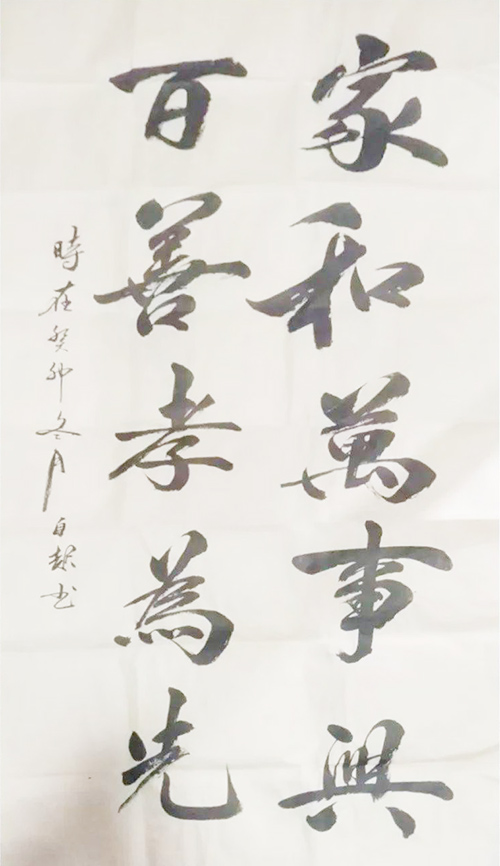 家和萬事興
百善孝為先
時在癸卯冬月自超书